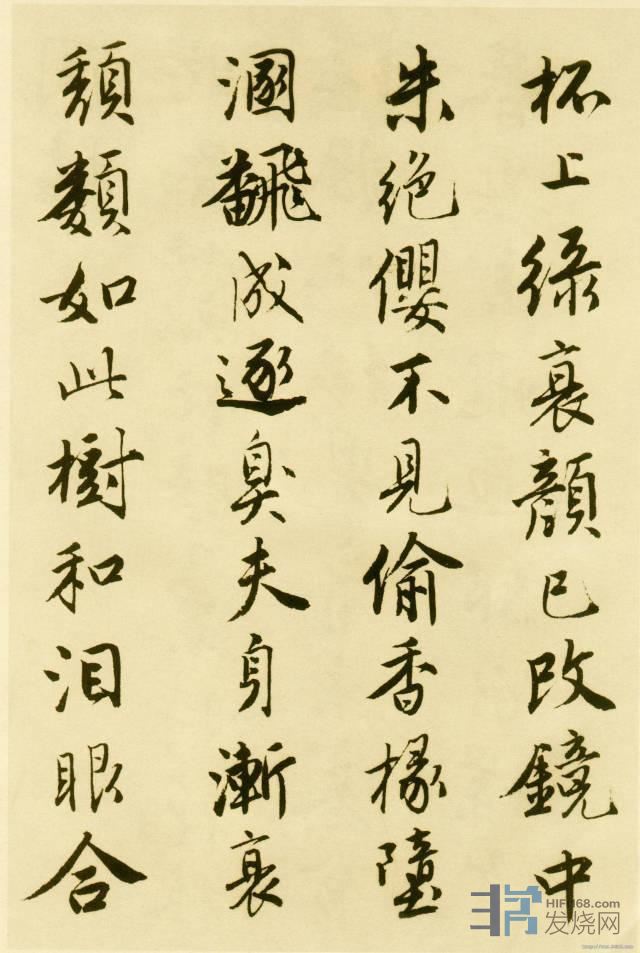 杯上緑衰顔已改鏡中
朱絶纓不見偷香椽墮
溷飜成逐臭夫身漸衰
頽類如此樹和泪眼合
HIFI168.com
发烧网